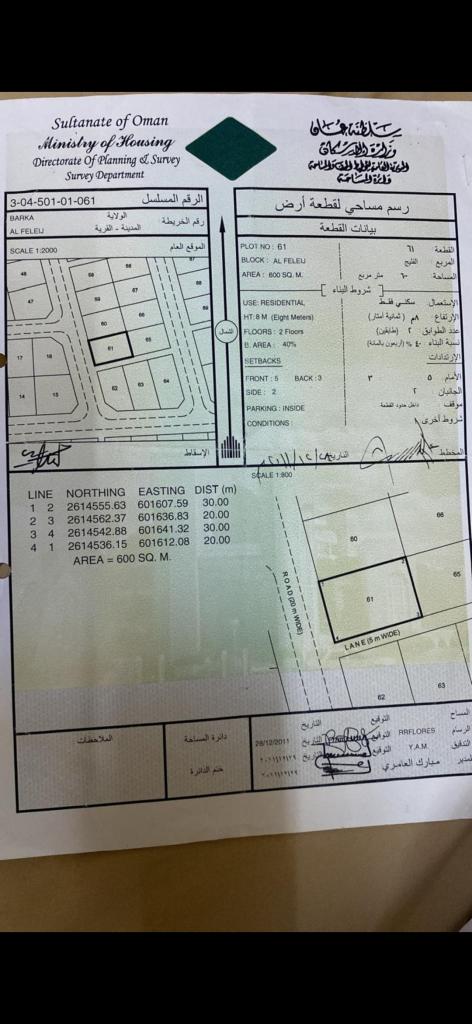 Sultanate of Oman
Ministry of Housing
Directorate Of Planning & Survey
Survey Department
سلطنة عمان
وزارة الإسكان
دائرة المساحة
3-04-501-01-061
الرقم المسلسل
BARKA
الولاية
رقم الخريطة
AL FELEIJ
المدينة - القرية
SCALE 1:2000
الموقع العام
48
47
17
18
14
15
68
69
59
67
66
60
61
65
62
63
64
الشمال
الإسقاط
رسم مساحي لقطعة أرض
بيانات القطعة
PLOT NO : 61
٦١
القطعة
BLOCK : AL FELEIJ
الفليج
المربع
AREA : 600 SQ. M.
متر مربع
المساحة
شروط البناء
USE: RESIDENTIAL
سكني فقط
الإستعمال
HT: 8 M (Eight Meters)
٨م (ثمانية أمتار)
الإرتفاع
FLOORS : 2 Floors
٢ (طابقين)
عدد الطوابق
B. AREA : 40%
٤٠ % (أربعون بالمائة)
نسبة البناء
SETBACKS
الإرتدادات
FRONT : 5 BACK : 3
٣
٥
الأمام
SIDE : 2
٢
الجانبان
PARKING : INSIDE
داخل حدود القطعة
موقف
CONDITIONS :
شروط أخرى
المخطط
التاريخ
SCALE 1:800
LINE NORTHING EASTING DIST (m)
1 2 2614555.63 601607.59 30.00
2 3 2614562.37 601636.83 20.00
3 4 2614542.88 601641.32 30.00
4 1 2614536.15 601612.08 20.00
AREA = 600 SQ. M.
66
60
65
1
2
61
3
4
ROAD (20m WIDE)
LANE (5 m WIDE)
62
63
الملاحظات
دائرة المساحة
ختم الدائرة
التاريخ
التوقيع
المساح
28/12/2011
التاريخ
التوقيع
RRFLORES
الرسام
التاريخ
التوقيع
Y.A.M.
التدقيق
مبارك العامري